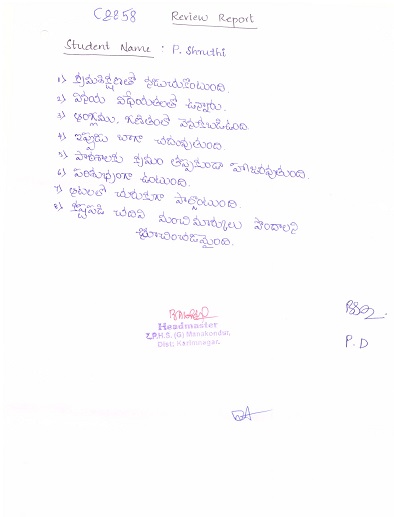 C2858 Review Report
Student Name : P. Shruthi
1) క్రమశిక్షణతో నడుచుకుంటుంది.
2) వినయ విధేయతలతో ఉన్నారు.
3) ఆంగ్లము, గణితంలో వెనుకబడినది.
4) ఇప్పుడు బాగా చదువుతుంది.
5) పాఠశాలకు క్రమం తప్పకుండా హాజరవుతుంది.
6) పరిశుభ్రంగా ఉంటుంది.
7) ఆటలలో చురుకుగా పాల్గొంటుంది.
8) కష్టపడి చదివి మంచి మార్కులు పొందాలని
సూచించడమైంది.
Headmaster
Z.P.H.S. (G) Manakondur,
Dist; Karimnagar.
P.D